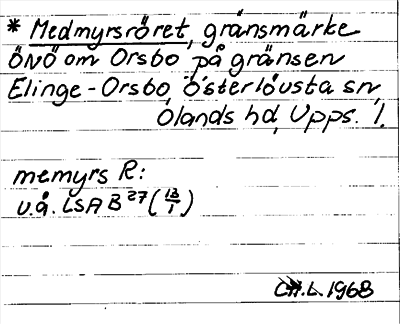 * Medmyrsröret, gränsmärke
ÖNÖ om Orsbo på gränsen
Elinge - Orsbo, Österlövsta sn,
Olands hd, Upps. l.
memyrs R:
u.å. LSA B 27 (13/1)
CH.L. 1968